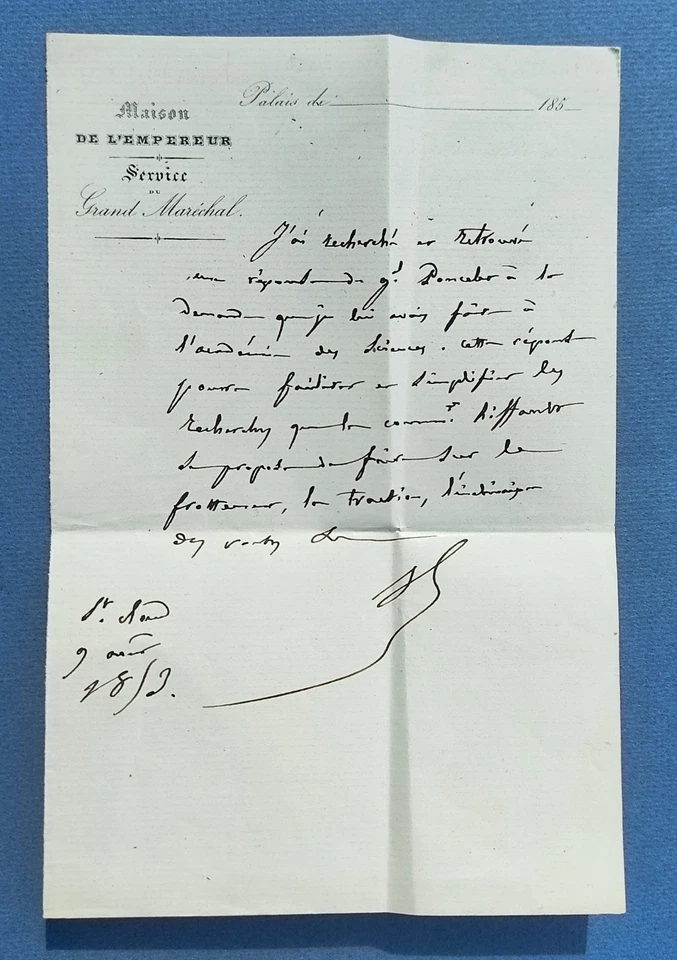 Palais de 185
Maison
DE L'EMPEREUR
Service
DU
Grand Maréchal.
J'ai recherché et retrouvé
une réponse du gl Poncelet à la
demande que je lui avais faite à
l'académie des Sciences. cette réponse
pourra faciliter et simplifier les
recherches que le comm.t
se propose de faire sur le
frottement, la traction,
des
St. Cloud
9 août
1853.